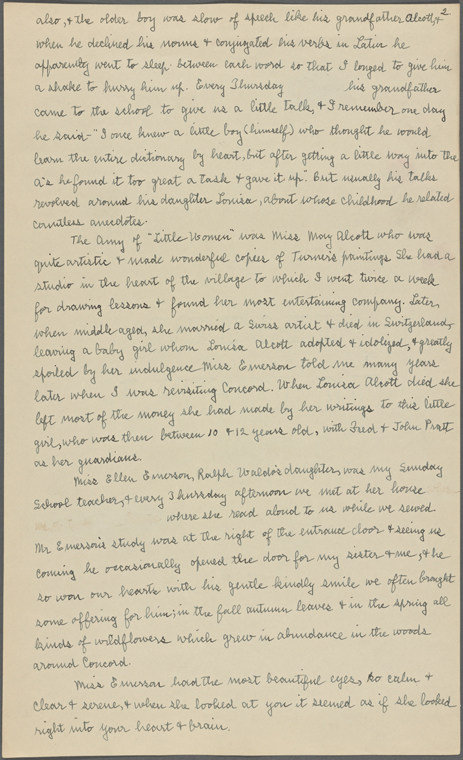 2
also, & the older boy was slow of speech like his grandfather Alcott, &
when he declined his nouns & conjugated his verbs in Latin he
apparently went to sleep between each word so that I longed to give him
a shake to hurry him up. Every Thursday his grandfather
came to the school to give us a little talk, & I remember one day
he said - "I once knew a little boy (himself) who thought he would
learn the entire dictionary by heart, but after getting a little way into the
A's he found it too great a task & gave it up". But usually his talks
revolved around his daughter Louisa, about whose childhood he related
countless anecdotes.
The Amy of "Little Women" was Miss May Alcott who was
quite artistic & made wonderful copies of Turner's paintings. She had a
studio in the heart of the village to which I went twice a week
for drawing lessons & found her most entertaining company. Later,
when middle aged, she married a Swiss artist & died in Switzerland,
leaving a baby girl whom Louisa Alcott adopted & idolized, & greatly
spoiled by her indulgence Miss Emerson told me many years
later when I was revisiting Concord. When Louisa Alcott died she
left most of the money she had made by her writings to this little
girl, who was then between 10 & 12 years old, with Fred & John Pratt
as her guardians.
Miss Ellen Emerson, Ralph Waldo's daughter, was my Sunday
School teacher, & every Thursday afternoon we met at her house
where she read aloud to us while we sewed.
Mr Emerson's study was at the right of the entrance door & seeing us
coming he occasionally opened the door for my sister & me, & he
so won our hearts with his gentle kindly smile we often brought
some offering for him; in the fall autumn leaves & in the spring all
kinds of wildflowers which grew in abundance in the woods
around Concord.
Miss Emerson had the most beautiful eyes, so calm &
clear & serene, & when she looked at you it seemed as if she looked
right into your heart & brain.